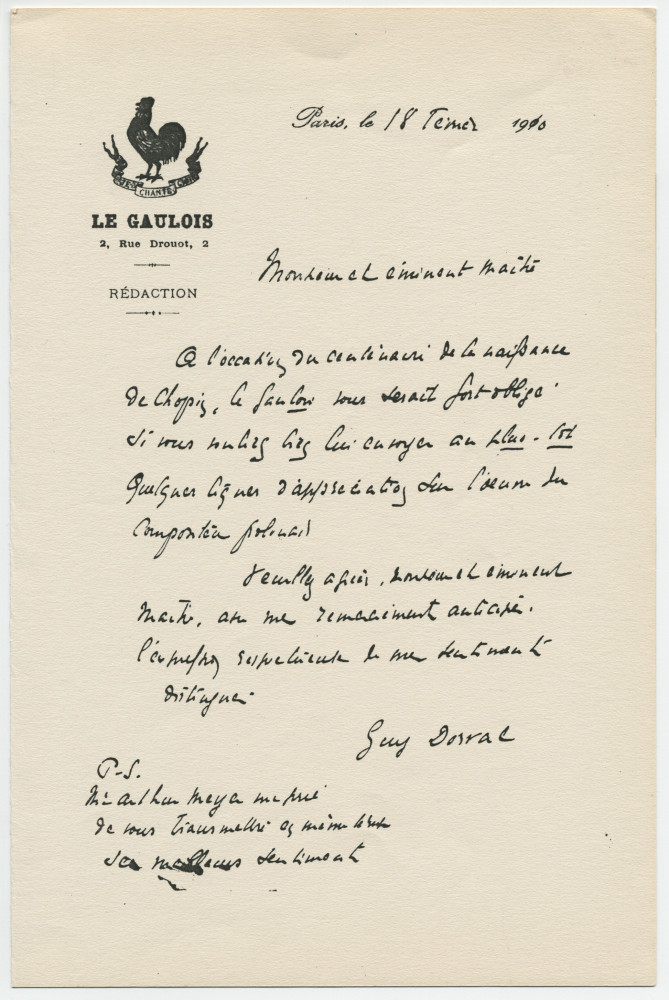 JE CHANTE CLAIR
LE GAULOIS
2, Rue Drouot, 2
RÉDACTION
Paris, le 18 février 1910
Monsieur et éminent maître
A l'occasion du centenaire de la naissance
de Chopin, le Gaulois vous serait fort obligé
si vous vouliez bien lui envoyer au plus-tôt
quelques lignes d'appréciation sur l'œuvre du
compositeur polonais
Veuillez agréer, monsieur et éminent
maître, avec mes remerciements anticipés,
l'expression respectueuse de mes sentiments
distingués
Guy Dorval
P-S.
Mr Arthur Meyer me prie
de vous transmettre en même temps
ses meilleurs sentiments